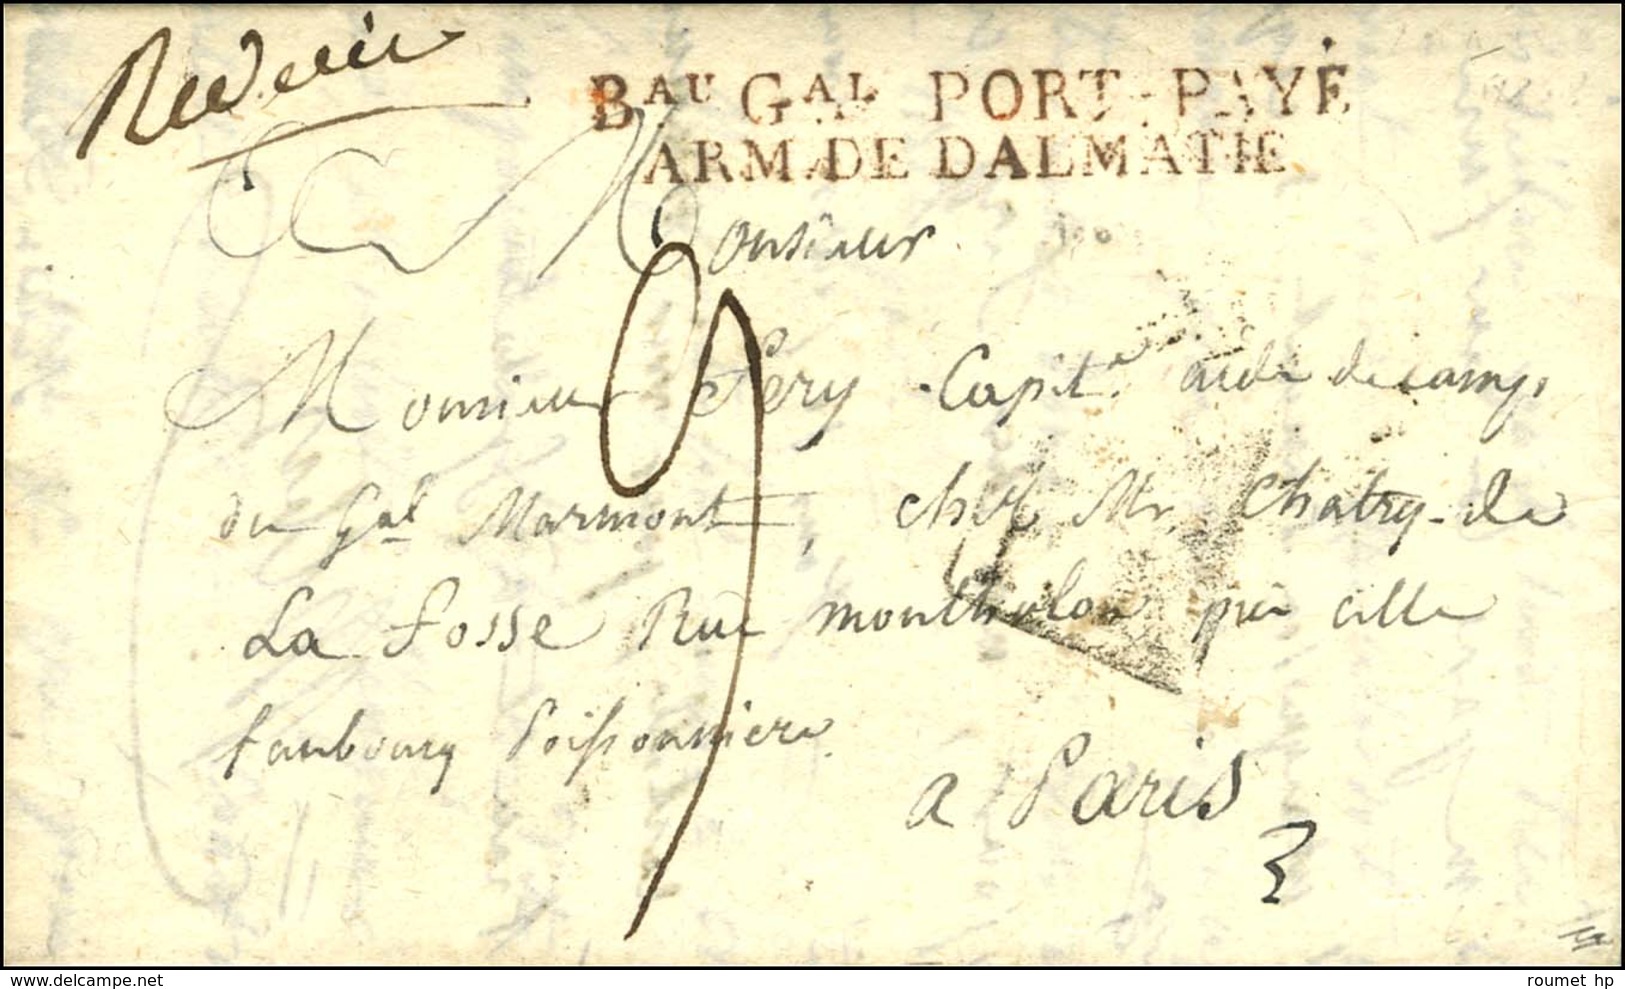 Bau Gal PORT-PAYÉ
ARM. DE DALMATIE
Monsieur
Monsieur Fery Capit. aide de camp
du Gal Marmont, chez Mr. Chatry-de
La Fosse Rue montholon près celle
faubourg Poissonniere
a Paris
roumet hp